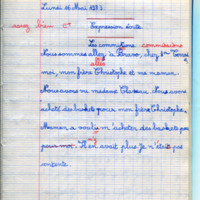 Lundi 11 Mars 1973
assez bien C+ Expression écrite
Les commissions commissions
Nous sommes allez à Bravo, chez Mme
allés
moi, mon frère Christophe et ma maman.
Nous avons vu madame Claseau. Nous avons
acheté des baskets pour mon frère Christophe.
Maman a oublié m'acheter des baskets pour
pour moi. Il en avait plus je n'était pas
contente.